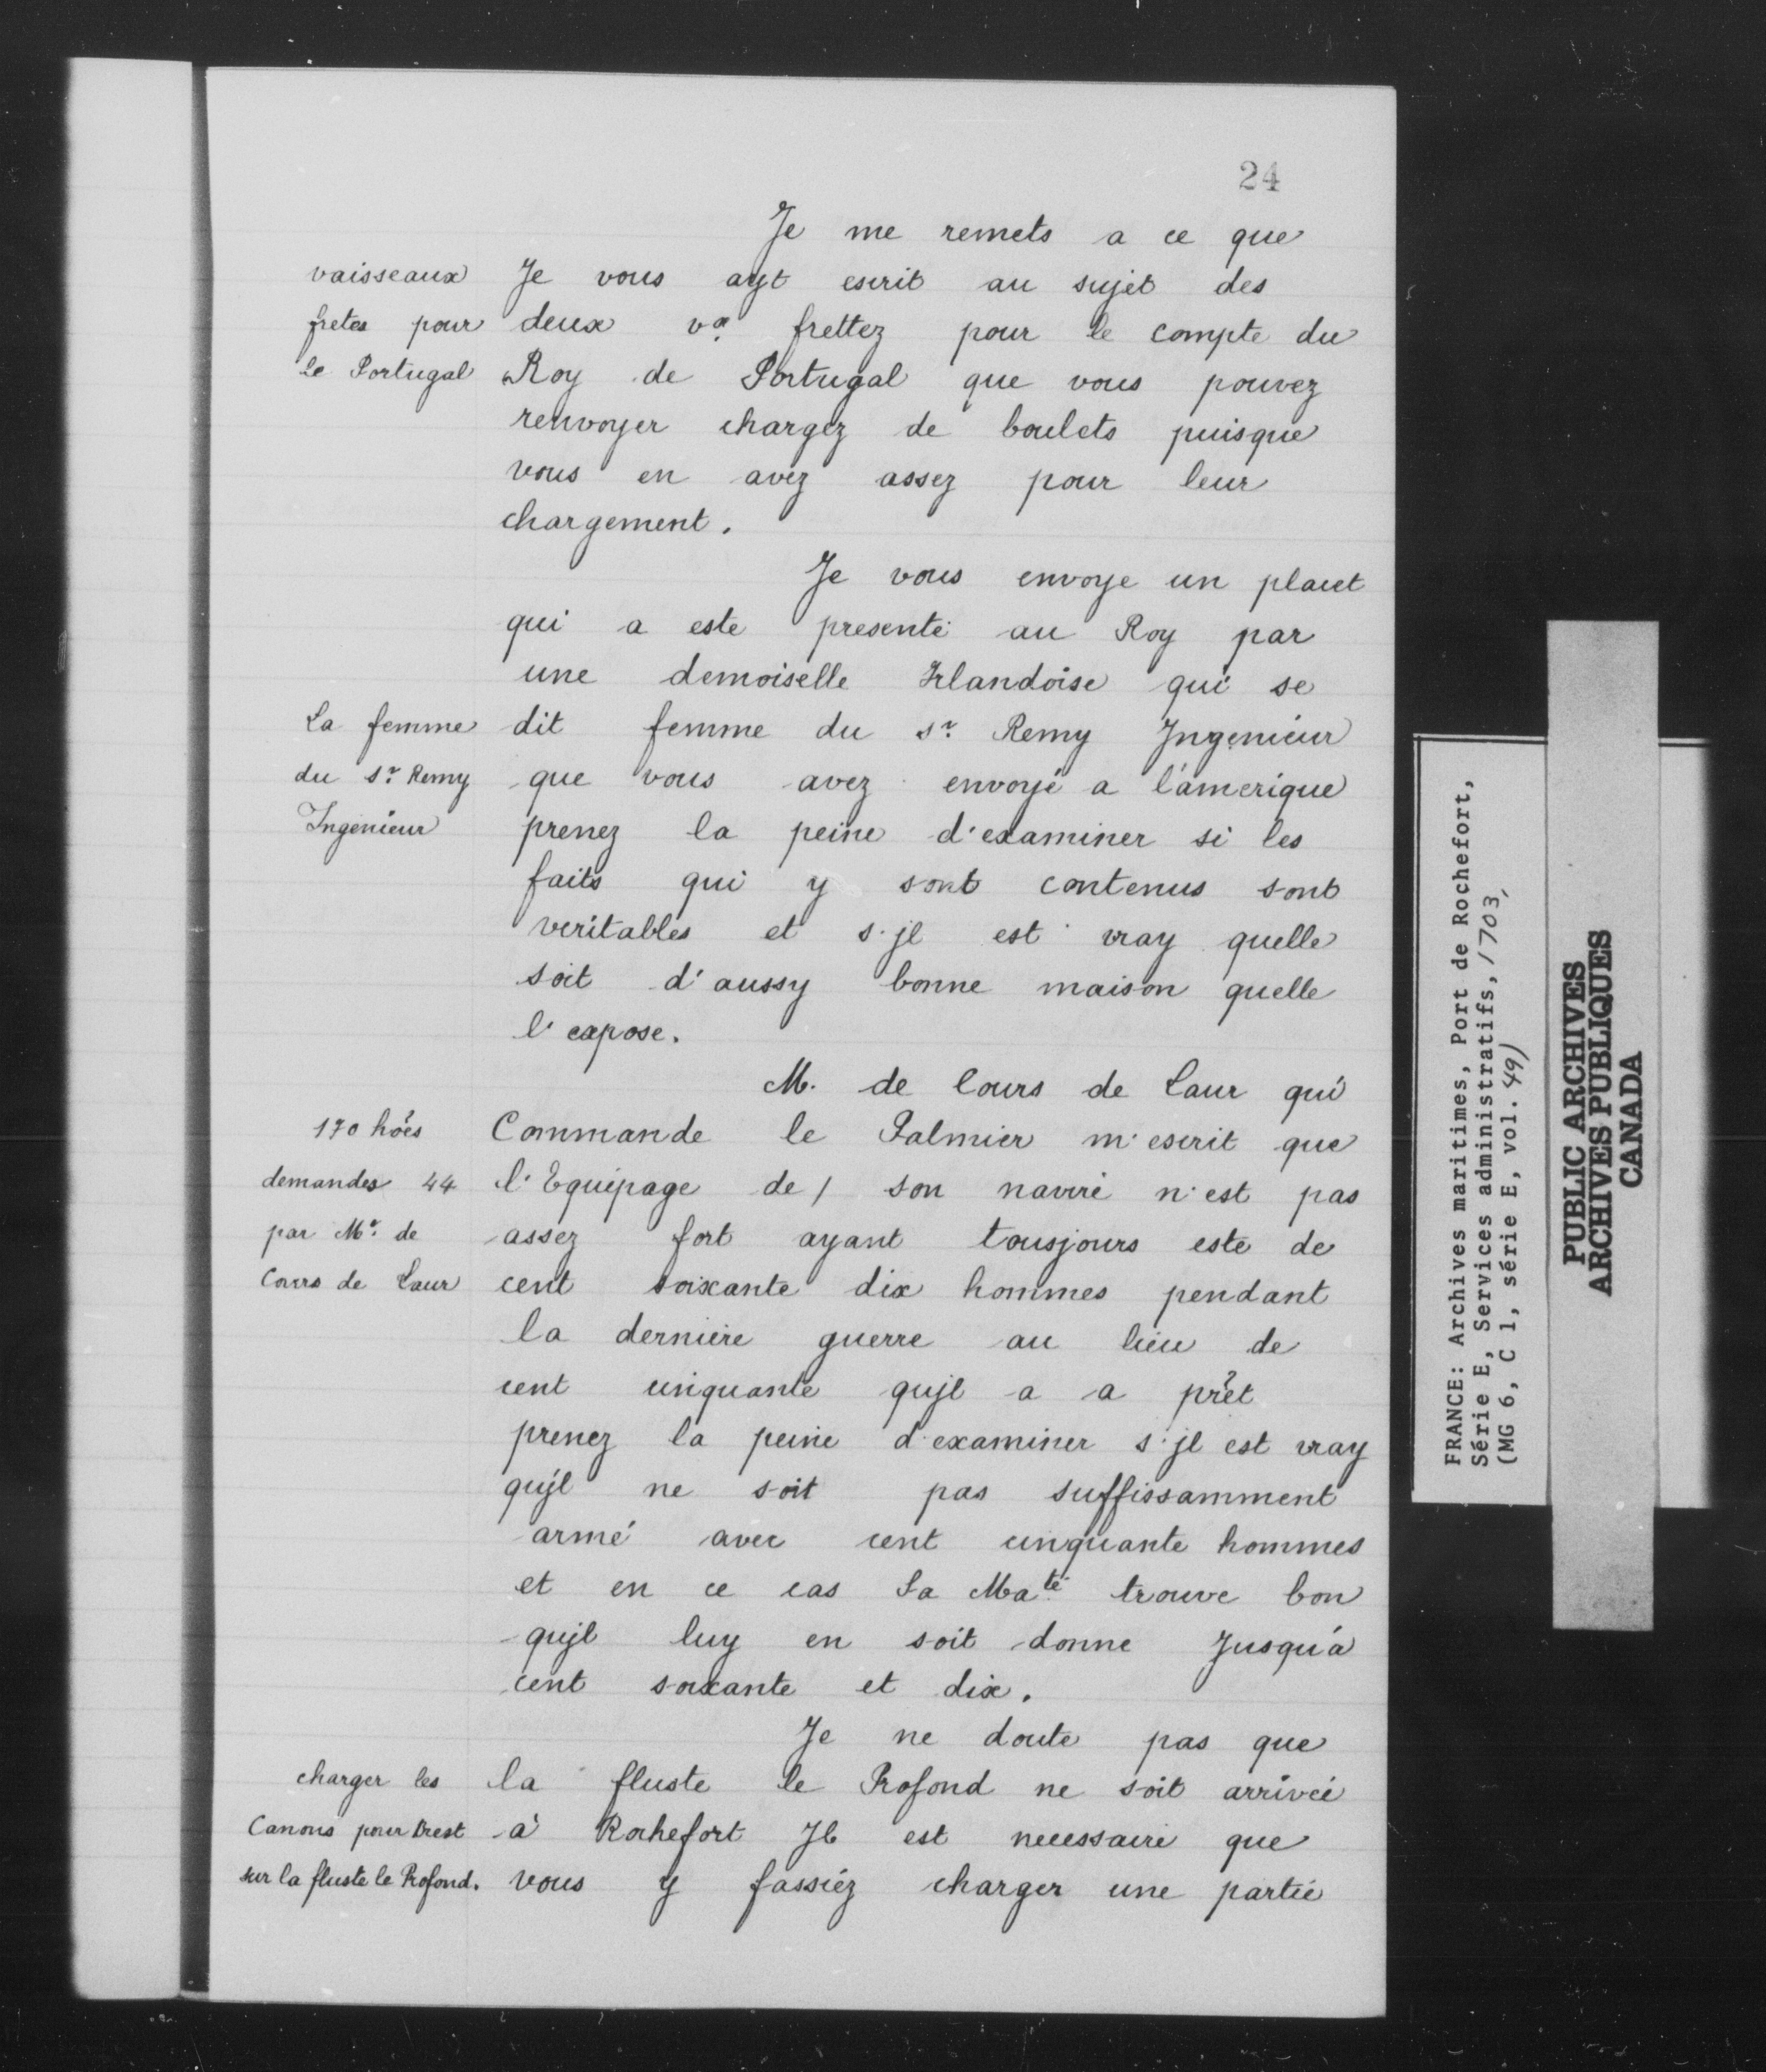 24
Je me remets a ce que
vaisseaux
fretes pour
le Portugal
Je vous ayt escrit au sujet des
deux vx frettez pour le compte du
Roy de Portugal que vous pouvez
renvoyer chargez de boulets puisque
vous en avez assez pour leur
chargement.
Je vous envoye un placet
qui a este presenté au Roy par
une demoiselle Irlandoise qui se
La femme
du sr. Remy
Ingenieur
dit femme du sr. Remy Ingenieur
que vous avez envoyé a l'amerique
prenez la peine d'examiner si les
faits qui y sont contenus sont
veritables et s'jl est vray quelle
soit d'aussy bonne maison quelle
l'expose.
M. de Cours de Laur qui
170 hoes
demandes 44
par Mr. de
Cours de Laur
Commande le Palmier m'escrit que
l'Equipage de / son navire n'est pas
assez fort ayant tousjours este de
cent soixante dix hommes pendant
la derniere guerre au lieu de
cent cinquante qujl a a pret
prenez la peine d'examiner s'jl est vray
qujl ne soit pas suffissamment
armé avec cent cinquante hommes
et en ce cas Sa Maté trouve bon
qujl luy en soit donne Jusqu'a
cent soixante et dix.
Je ne doute pas que
charger les
Canons pour Brest
sur la fluste le Profond.
la fluste le Profond ne soit arrivée
à Rochefort Jl est necessaire que
vous y fassiéz charger une partie
FRANCE: Archives maritimes, Port de Rochefort,
Série E, Services administratifs, 1703,
(MG 6, C 1, série E, vol. 49)
PUBLIC ARCHIVES
ARCHIVES PUBLIQUES
CANADA